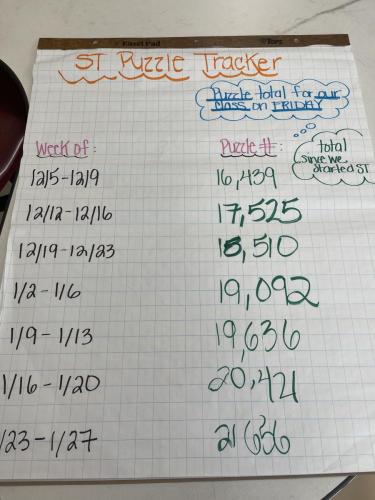 Easel Pad
ST Puzzle Tracker
Puzzle total for our
class on FRIDAY
Week of:
Puzzle #:
total
since we
started ST
12/5-12/9
16,439
12/12-12/16
17,525
12/19-12/23
18,510
1/2-1/6
19,092
1/9-1/13
19,636
1/16-1/20
20,421
/23-1/27